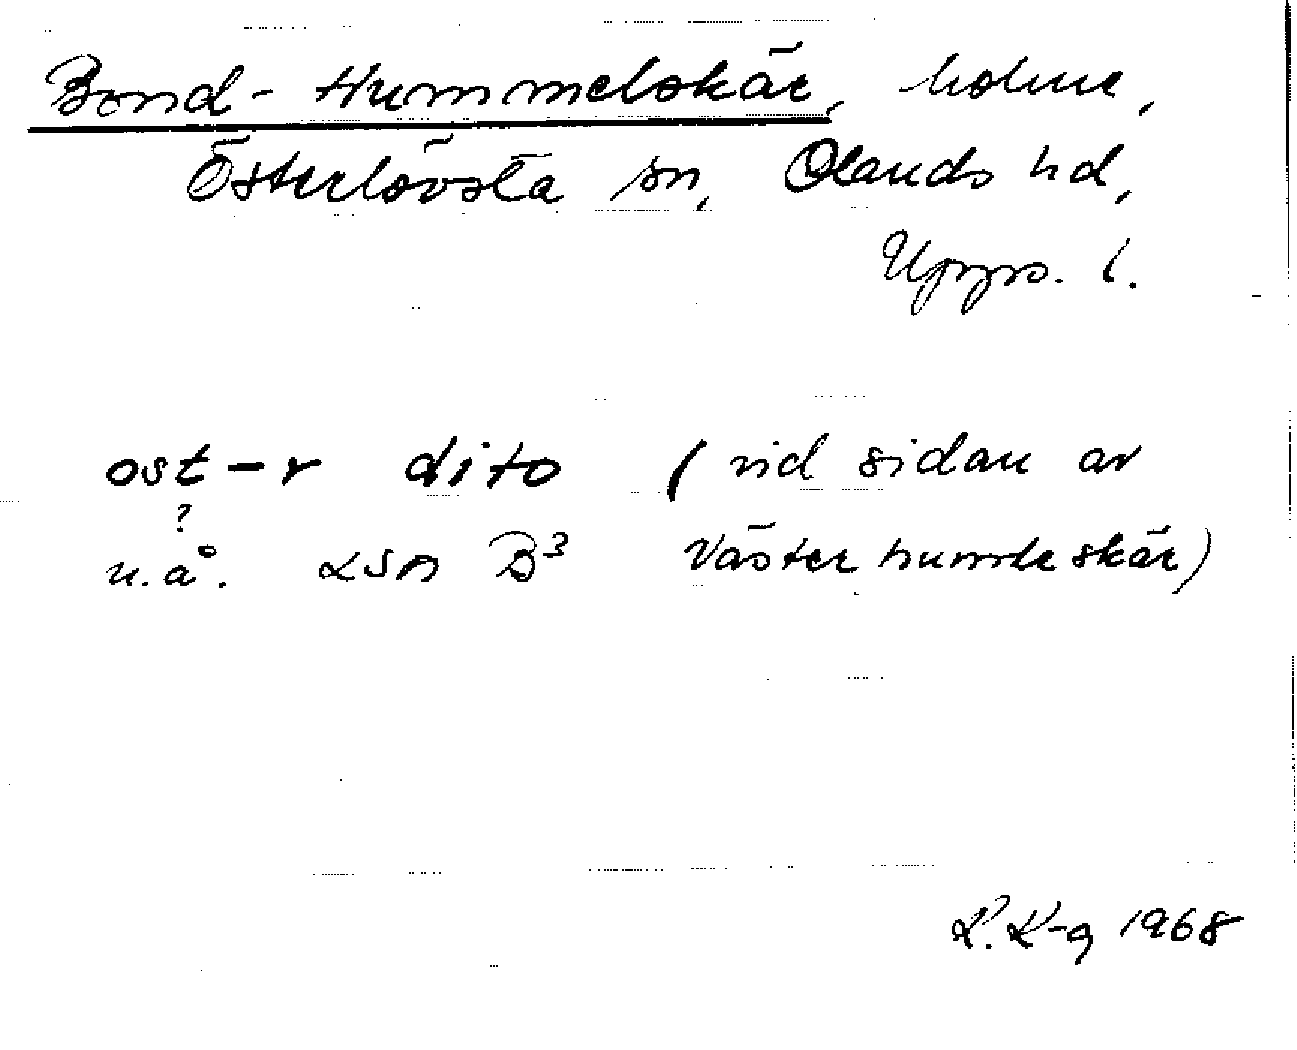 Bond-Hummelskär, holme,
Österlövsta sn, Olands hd,
Upps. l.
ost-r dito (vid sidan av
?
u.å. LSA B³ Västerhumleskär)
K-g 1968